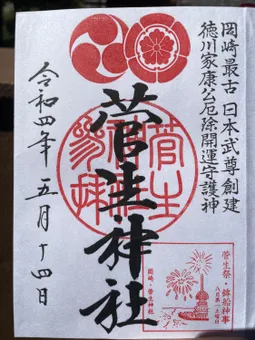 岡崎最古 日本武尊創建
徳川家康公厄除開運守護神
菅生神社
令和四年 五月十四日
菅生
菅生祭・鉾船神事
岡崎・菅生神社